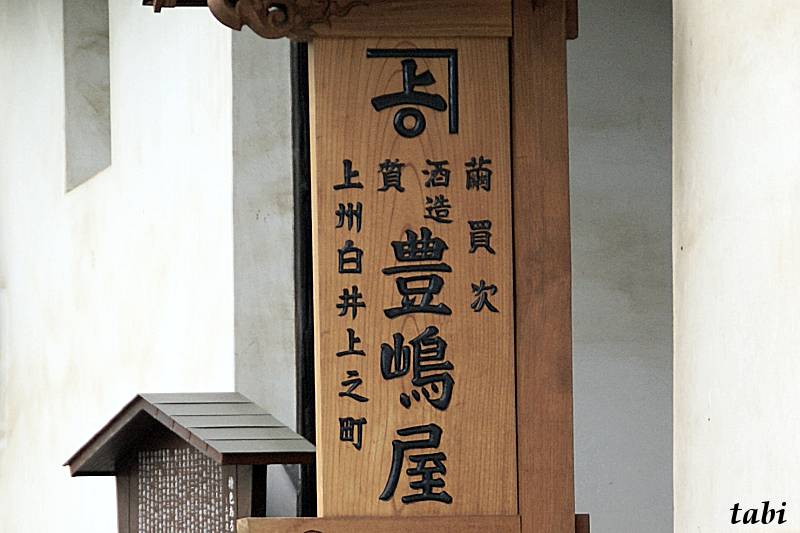 上
繭買次
酒造
質
豊嶋屋
上州白井上之町
tabi